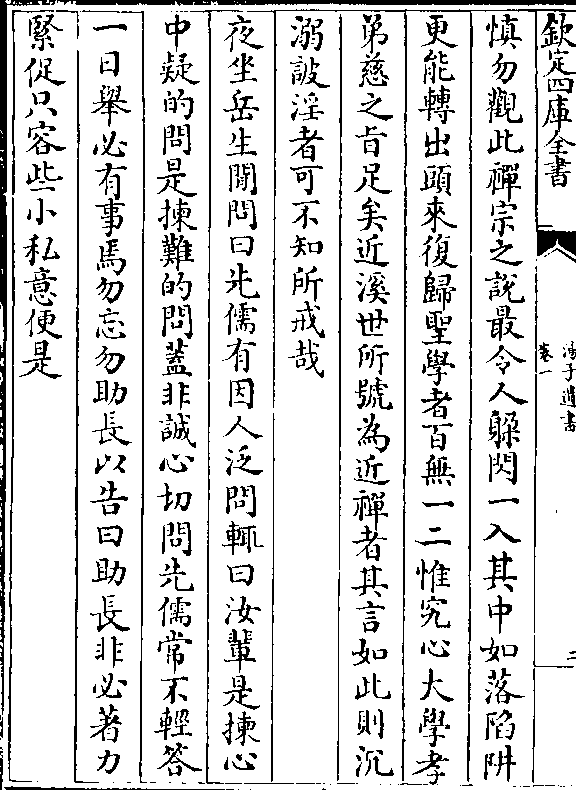 欽定四庫全書
馮子遺書
卷一
慎勿觀此禪宗之說最令人躱閃一入其中如落陷阱
更能轉出頭來復歸聖學者百無一二惟究心大學孝
弟慈之㫖足矣近溪世所號為近禪者其言如此則沉
溺詖淫者可不知所戒哉
夜坐岳生聞問曰先儒有因人泛問輒曰汝輩是揀心
中疑的問是揀難的問蓋非誠心切問先儒常不輕答
一日舉必有事焉勿忘勿助長以告曰助長非必著力
緊促只容些小私意便是